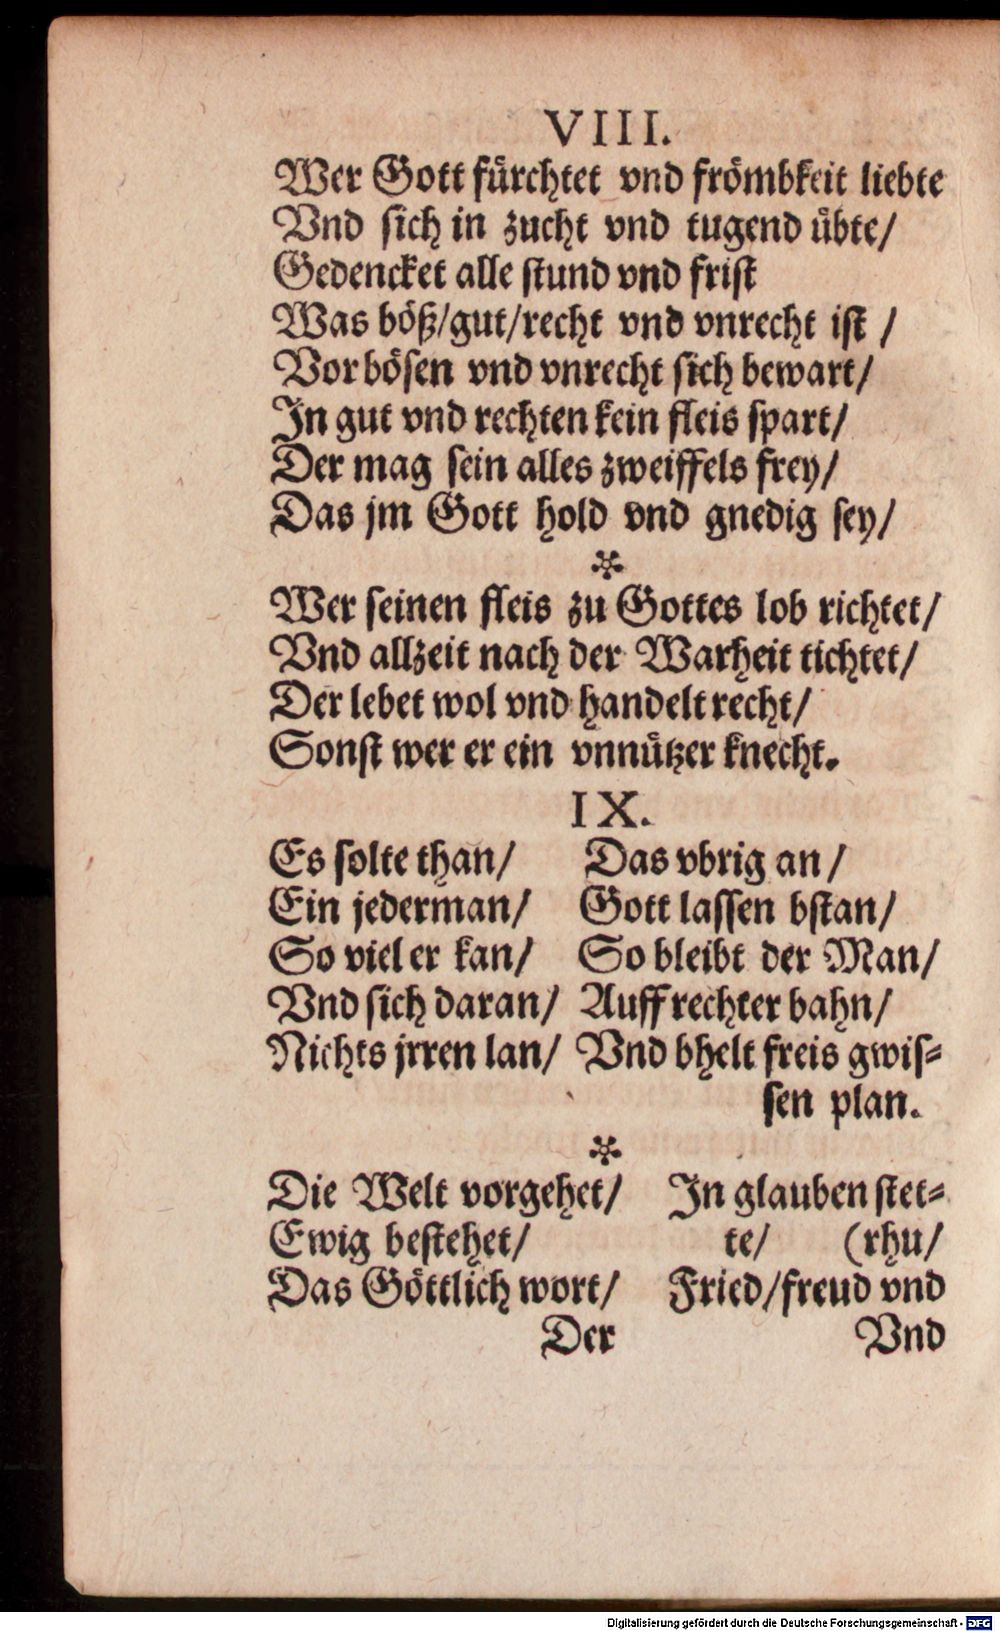 VIII.
Wer Gott fürchtet vnd frömbkeit liebte
Vnd sich in zucht vnd tugend übte/
Gedencket alle stund vnd frist
Was böß/gut/recht vnd vnrecht ist /
Vor bösen vnd vnrecht sich bewart/
In gut vnd rechten kein fleis spart/
Der mag sein alles zweiffels frey/
Das jm Gott hold vnd gnedig sey/
Wer seinen fleis zu Gottes lob richtet/
Vnd allzeit nach der Warheit tichtet/
Der lebet wol vnd handelt recht/
Sonst wer er ein vnnützer knecht.
IX.
Es solte than/
Ein jederman/
So viel er kan/
Vnd sich daran/
Nichts jrren lan/
Das vbrig an/
Gott lassen bstan/
So bleibt der Man/
Auff rechter bahn/
Vnd bhelt freis gwis-
sen plan.
Die Welt vorgehet/
Ewig bestehet/
Das Göttlich wort/
Der
In glauben stet-
te/ (rhu/
Fried/freud vnd
Vnd
Digitalisierung gefördert durch die Deutsche Forschungsgemeinschaft - DFG